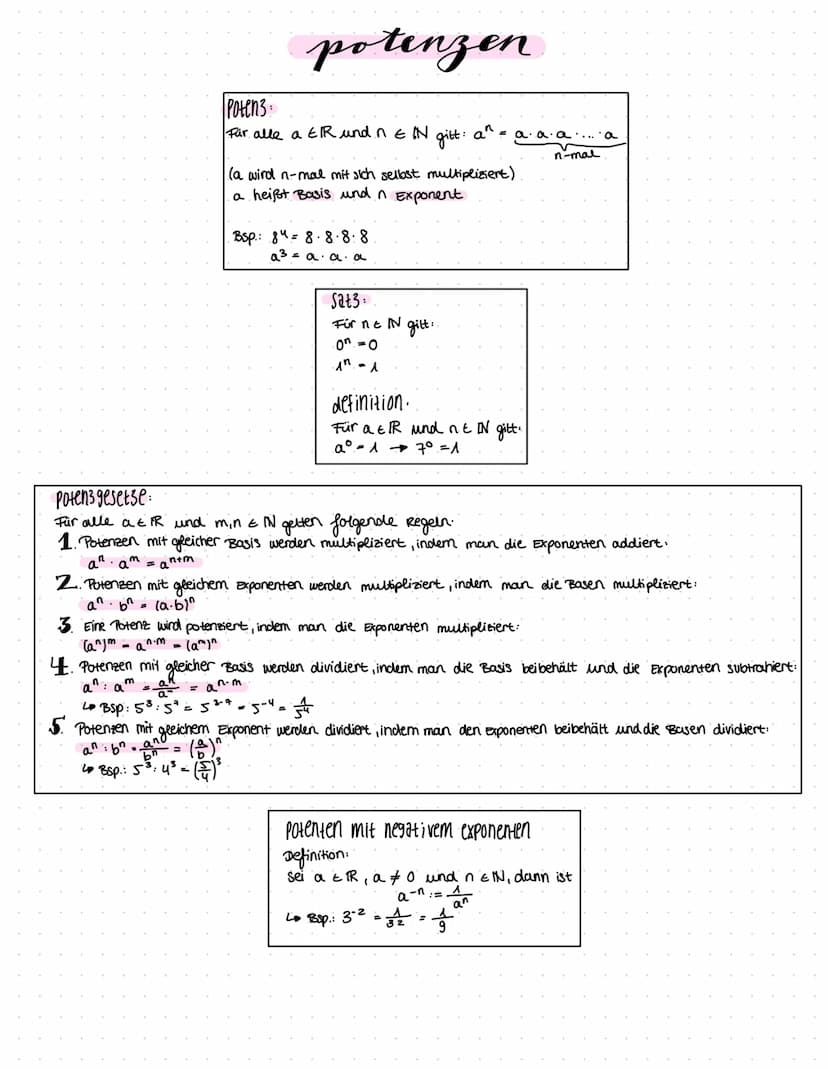 potenzen
Potenz:
Für alle a ∈ ℝ und n ∈ ℕ gilt: aⁿ = a · a · a · ... · a
n-mal
(a wird n-mal mit sich selbst multipliziert)
a heißt Basis und n Exponent
Bsp.: 8⁴ = 8 · 8 · 8 · 8
a³ = a · a · a
Satz:
Für n ∈ ℕ gilt:
0ⁿ = 0
1ⁿ = 1
definition.
Für a ∈ ℝ und n ∈ ℕ gilt:
a⁰ = 1 → 7⁰ = 1
Potenzgesetze:
Für alle a ∈ ℝ und m,n ∈ ℕ gelten folgende Regeln.
1. Potenzen mit gleicher Basis werden multipliziert, indem man die Exponenten addiert.
aⁿ · aᵐ = aⁿ⁺ᵐ
2. Potenzen mit gleichem Exponenten werden multipliziert, indem man die Basen multipliziert:
aⁿ · bⁿ = (a·b)ⁿ
3. Eine Potenz wird potenziert, indem man die Exponenten multipliziert:
(aⁿ)ᵐ = aⁿ·ᵐ = (aᵐ)ⁿ
4. Potenzen mit gleicher Basis werden dividiert, indem man die Basis beibehält und die Exponenten subtrahiert:
aⁿ : aᵐ = aⁿ/aᵐ = aⁿ⁻ᵐ
↳ Bsp: 5³ : 5⁷ = 5³⁻⁷ = 5⁻⁴ = 1/5⁴
5. Potenzen mit gleichem Exponent werden dividiert, indem man den Exponenten beibehält und die Basen dividiert:
aⁿ : bⁿ = aⁿ/bⁿ = (a/b)ⁿ
↳ Bsp.: 5³ : 4³ = (5/4)³
Potenzen mit negativem exponenten
Definition:
Sei a ∈ ℝ, a ≠ 0 und n ∈ ℕ, dann ist
a⁻ⁿ := 1/aⁿ
↳ Bsp.: 3⁻² = 1/3² = 1/9